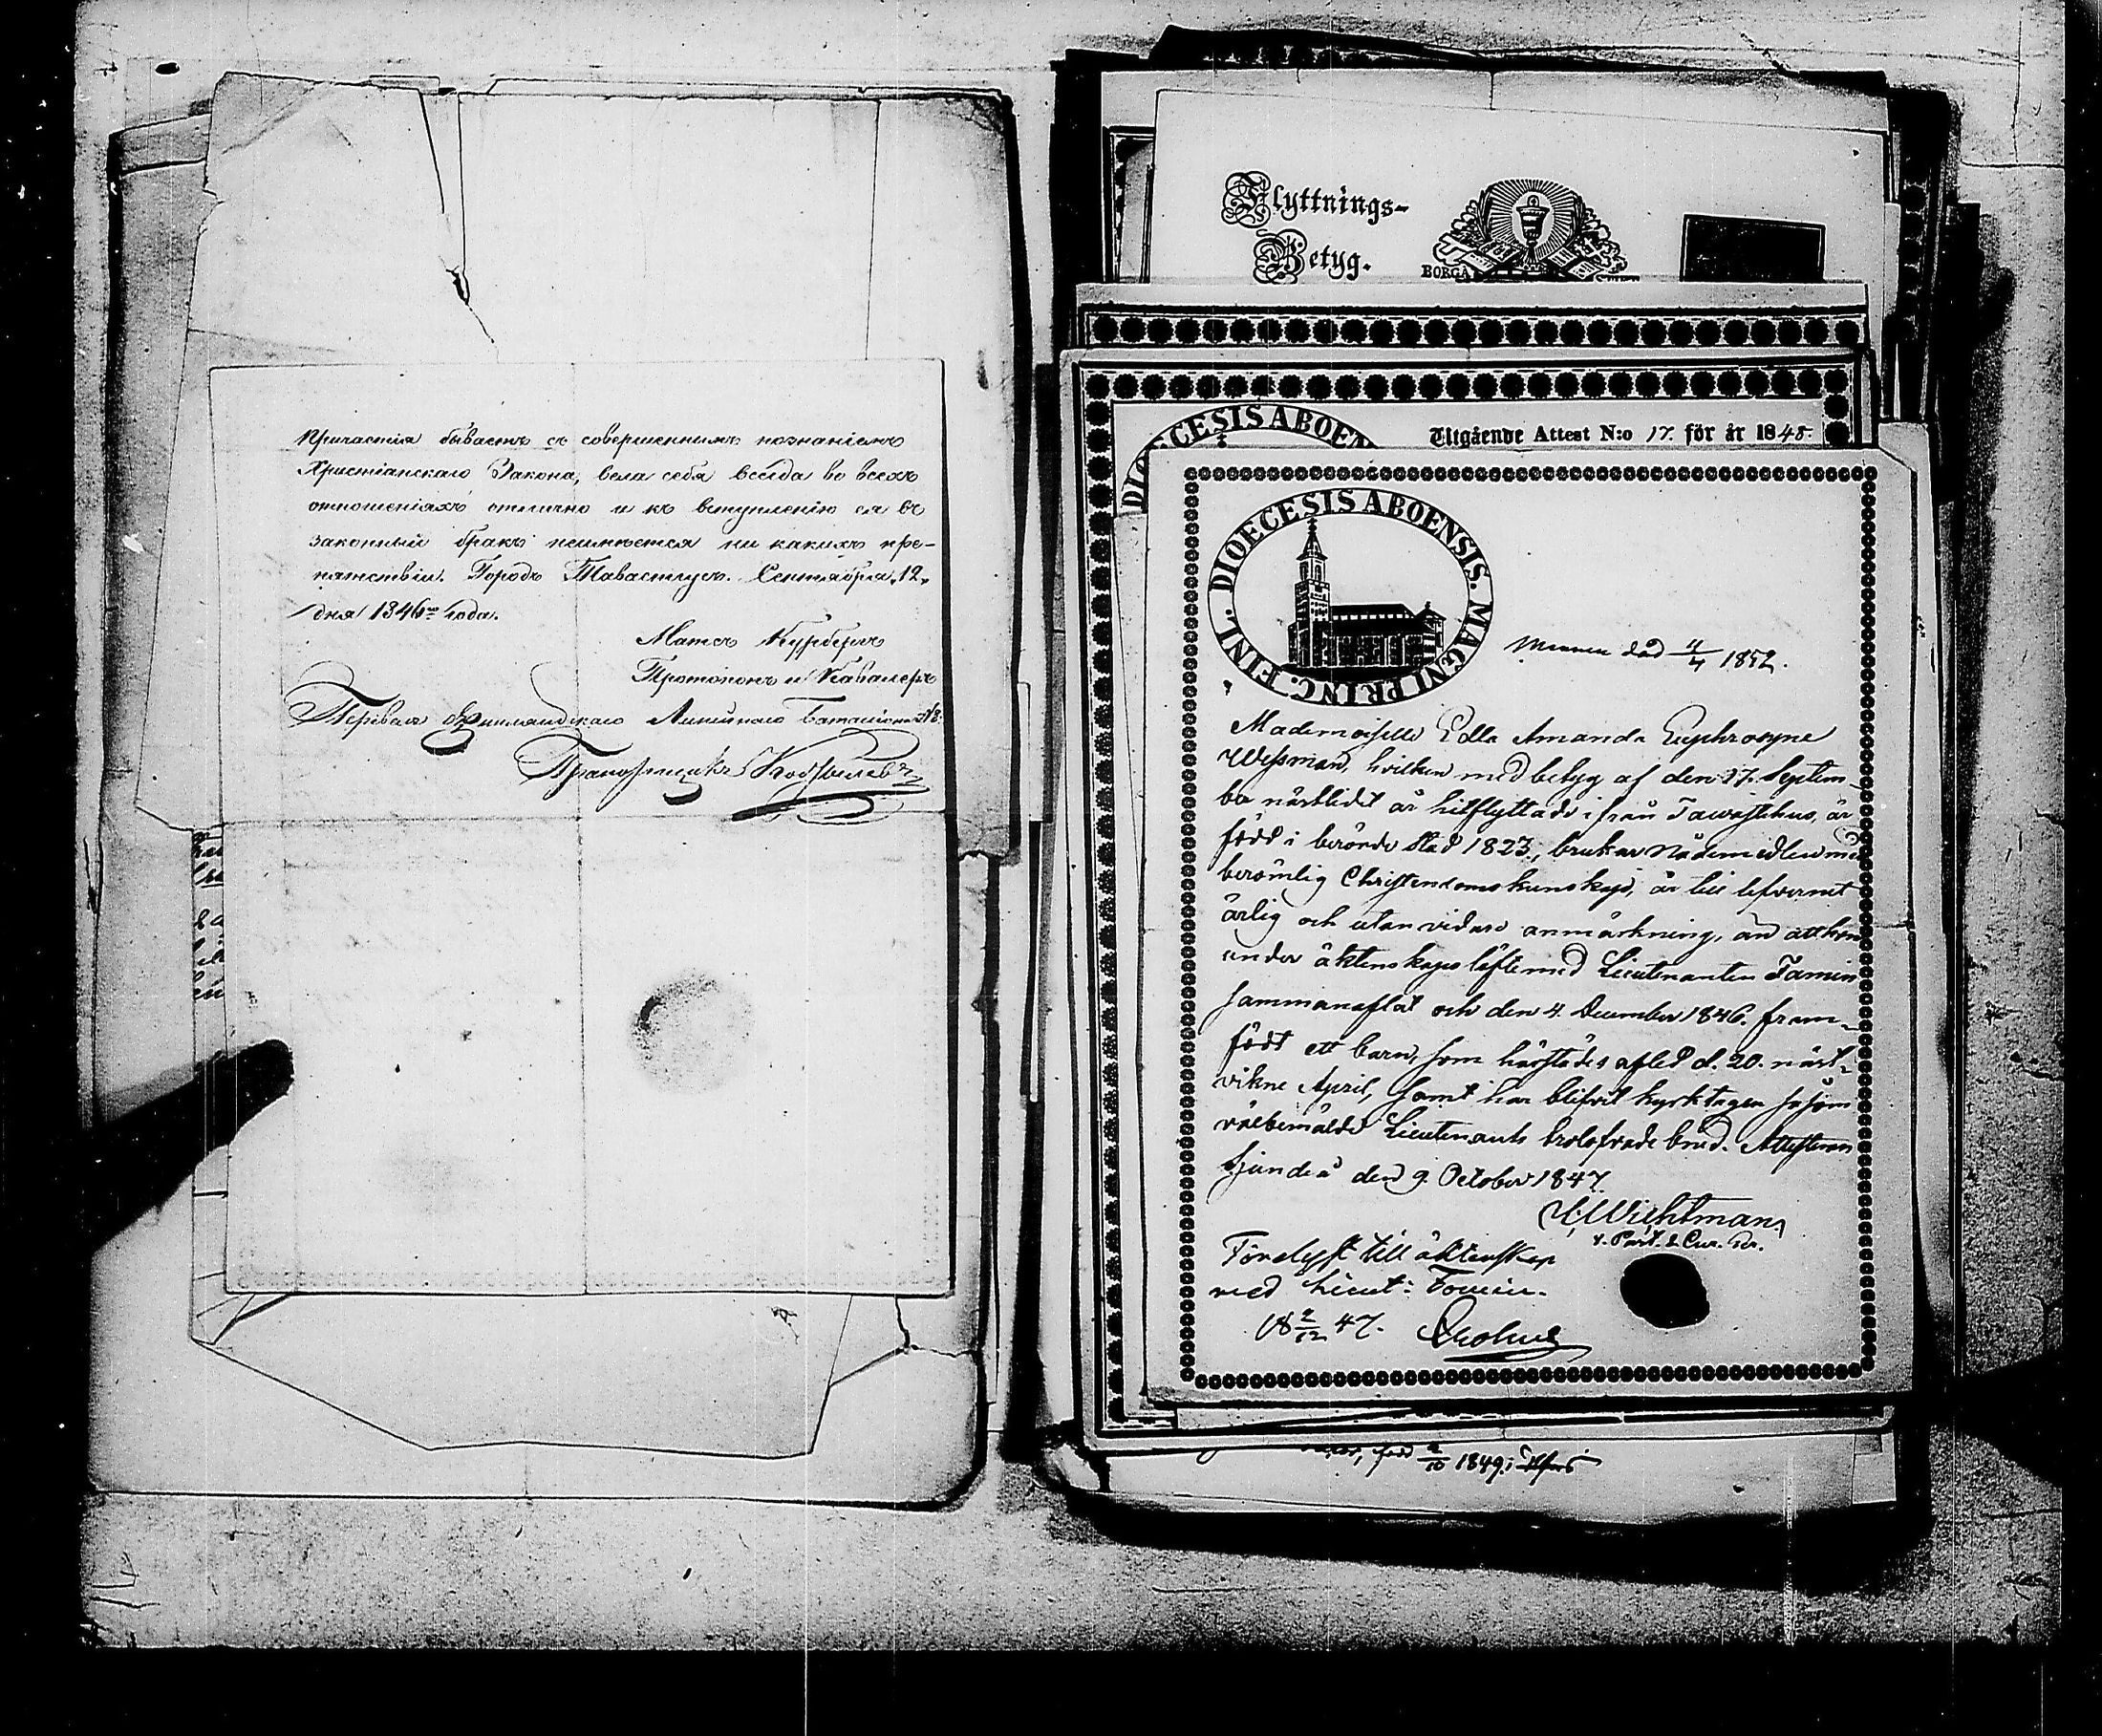 Причастія бываетъ съ совершеннымъ познаніемъ
Христіанскаго Закона, вела себя всегда во всехъ
отношеніяхъ отлично и къ вступленію ея въ
законный бракъ неимѣется ни какихъ пре-
пятствіи. Городъ Тавастгусъ. Сентября „12„
дня 1846го года.
Матсъ Курбергъ
Протопопъ и Кавалеръ
Перевелъ Финляндскаго Линейнаго Баталіона №8:
Прапорщикъ
Flyttnings-
Betyg.
BORGÅ
DIOECESIS ABOEN
Utgående Attest N:o 17. för år 1848.
DIOECESIS ABOENSIS. MAGNI PRINC. FINL.
Mannen död 11/4 1852.
Mademoiselle Edla Amanda Euphrosyne
Wessman, hvilken med betyg af den 17. Septem-
ber nästlidit år hitflyttade ifrån Tawastehus, är
född i berörde stad 1823, brukar nådemedlen med
berömlig Christendomskunskap, är till lefvernet
ärlig och utan vidare anmärkning, än att hon
under äktenskapslöfte med Lieutenanten Tamin
sammanaflat och den 4. December 1846. fram-
födt ett barn, som härstädes afled d. 20. näst-
vikne April, samt har blifvit kyrktagen såsom
välbemälde Lieutenants trolofvade brud. Attesterar
Sjundeå den 9. October 1847.
Wichtman
v. Past. & Cur. Sr.
Förelyst till äktenskap
med Lieut: Fomin.
18 2/12 47.
född 2/10 1849 i Hfors